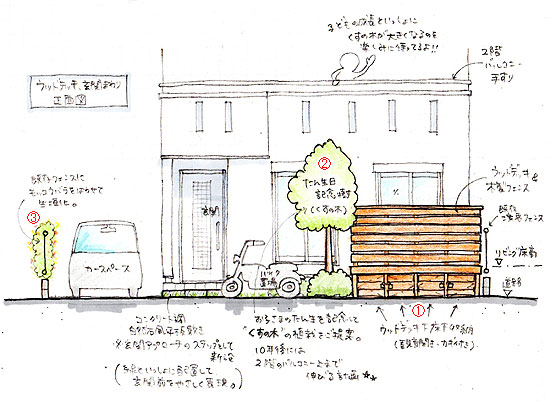 子どもの成長といっしょに
くすの木が大きくなるのを
楽しみに待ってるよ!!
2階
バルコニー
手すり
ウッドデッキ、玄関まわり
正面図
②
たん生日
記念樹
(くすの木)
ウッドデッキ&
木製フェンス
既存フェンスに
モッコウバラをはわせて
生垣化。
③
玄関
既存
境界フェンス
リビング床高
カースペース
バイク
置場
道路
①
コンクリート調
自然石風平板敷き
※玄関アプローチのステップとして
新設
(植栽といっしょに配置して
玄関前をやさしく演出。)
お子さまのたん生を記念して
"くすの木"の植栽をご提案。
10年後には
2階のバルコニー上まで
伸びる計画★★
ウッドデッキ下 床下収納
(観音開き・カギ付き)